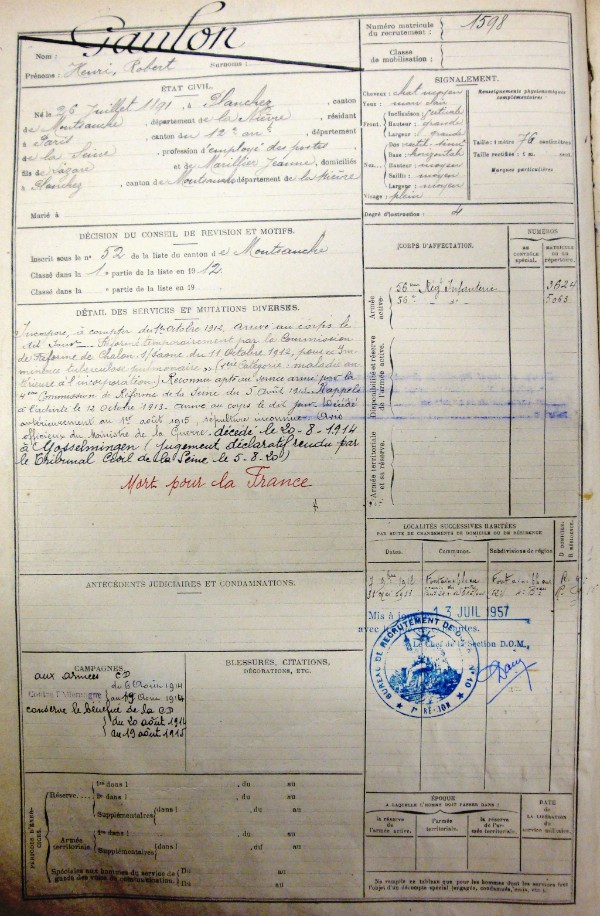 Nom : Gaulon
Prénoms : Henri, Robert Surnoms :
Numéro matricule du recrutement : 1598
Classe de mobilisation :
ÉTAT CIVIL.
Né le 26 Juillet 1891, à Planchez, canton
de Montsauche, département de la Nièvre, résidant
à Paris, canton du 12e arrt, département
de la Seine, profession d'employé des postes
fils de Lazare et de Maillier Jeanne, domiciliés
à Planchez, canton de Montsauche département de la Nièvre
Marié à
SIGNALEMENT.
Cheveux : chat moyen
Yeux : marr clair
Front. Inclinaison : verticale
Hauteur : grande
Largeur : grande
Nez. Dos : rectil. sinué
Base : horizontale
Hauteur : moyen
Saillie : moyen
Largeur : moyen
Visage : plein
Renseignements physionomiques complémentaires
Taille : 1 mètre 78 centimètres
Taille rectifiée : 1 m. cent.
Marques particulières
Degré d'instruction : 4
DÉCISION DU CONSEIL DE REVISION ET MOTIFS.
Inscrit sous le no 52 de la liste du canton de Montsauche
Classé dans la 1e partie de la liste en 1912
Classé dans la partie de la liste en 19
DÉTAIL DES SERVICES ET MUTATIONS DIVERSES.
Incorporé, à compter du 1er octobre 1912. Arrivé au corps le
Réformé temporairement par la Commission
de Réforme de Chalon s/Saône du 11 Octobre 1912, pour
tuberculose pulmonaire (1ère Catégorie : maladie an-
térieure à l'incorporation) Reconnu apte au service armé par la
4ème Commission de Réforme de la Seine du 5 Août 1913. Rappelé
à l'activité le 12 octobre 1913. Arrivé au corps le dit jour. Décédé
antérieurement au 1er août 1915, sépulture inconnue. Avis
officieux du Ministre de la Guerre. décédé le 20-8-1914
à Gosselmingen (jugement déclaratif rendu par
le Tribunal Civil de la Seine le 5-8-20)
Mort pour la France
CORPS D'AFFECTATION.
NUMÉROS
AU CONTRÔLE SPÉCIAL.
MATRICULE OU AU RÉPERTOIRE.
Armée active.
56ème Régt Infanterie 3624
56e d° 5063
Disponibilité et réserve de l'armée active.
Armée territoriale et sa réserve.
LOCALITÉS SUCCESSIVES HABITÉES
PAR SUITE DE CHANGEMENTS DE DOMICILE OU DE RÉSIDENCE
D. DOMICILE. R. RÉSIDENCE.
Dates. Communes. Subdivisions de région.
Mis à jour 13 JUIL 1957
Le Chef de la Section D.O.M.,
BUREAU DE RECRUTEMENT DE No 10
1e RÉGION
ANTÉCÉDENTS JUDICIAIRES ET CONDAMNATIONS.
CAMPAGNES.
aux armées CD
Contre l'Allemagne du 6 Août 1914
au 19 Août 1914
conserve le bénéfice de la CD
du 20 août 1914
au 19 août 1915
BLESSURES, CITATIONS,
DÉCORATIONS, ETC.
PÉRIODES D'EXERCICES.
Réserve 1re dans l , du au
2e dans l , du au
Supplémentaires dans l , du au
Armée territoriale. 1re dans l , du au
Supplémentaires dans l , du au
Spéciales aux hommes du service de garde des voies de communication. Du au
Du au
ÉPOQUE
A LAQUELLE L'HOMME DOIT PASSER DANS :
la réserve de l'armée active.
l'armée territoriale.
la réserve de l'armée territoriale.
DATE
DE LA LIBÉRATION DU SERVICE MILITAIRE.
Ne remplir ce tableau que pour les hommes dont les services font
l'objet d'un décompte spécial (engagés, condamnés, omis, etc.)